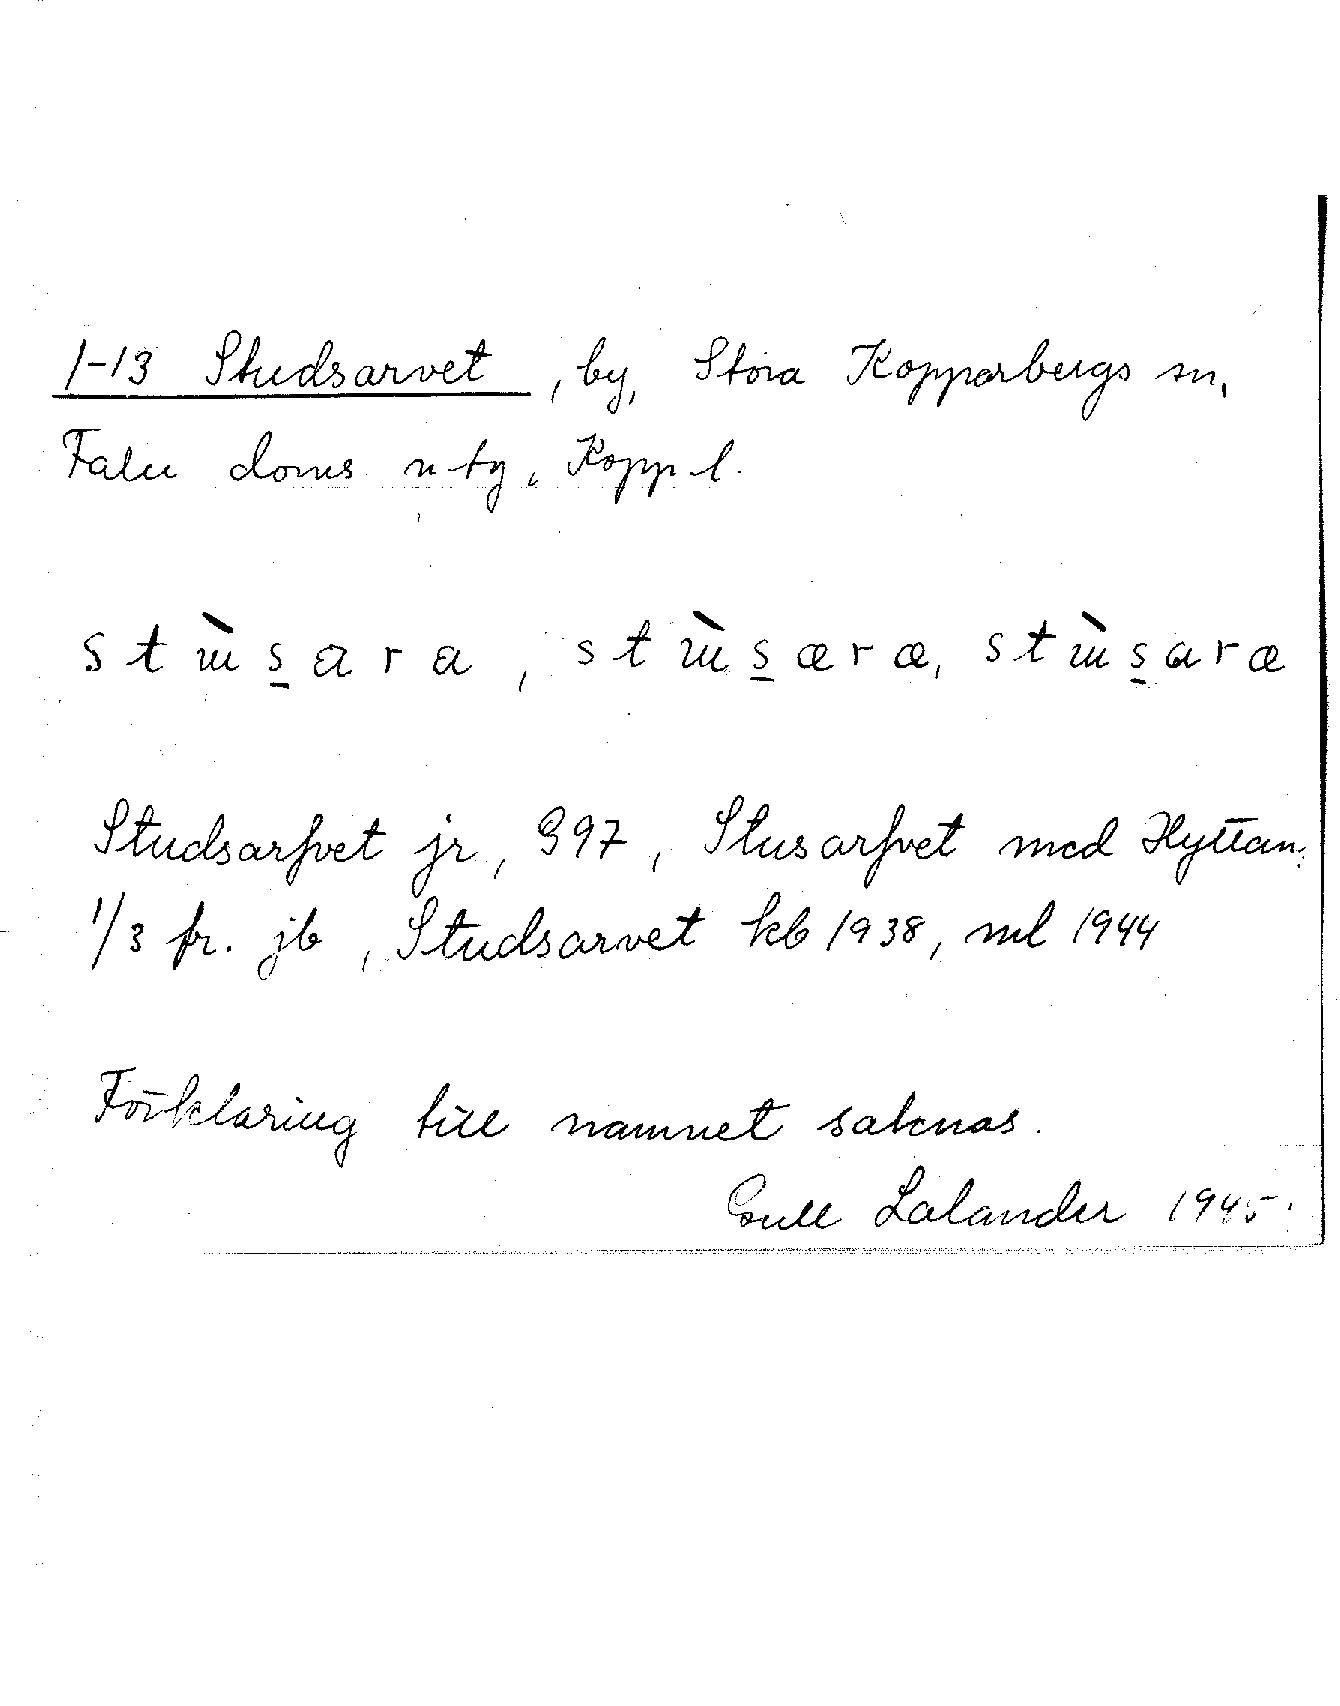 1-13 Studsarvet, by, Stora Kopparbergs sn,
Falu doms n tg, Kopp l.
stɯ̀s̲ara, stɯ̀s̲æræ, stɯ̀s̲aræ
Studsarfvet jr, G 97, Stusarfvet med Hyttan:
1/3 fr. jb, Studsarvet kb 1938, ml 1944
Förklaring till namnet saknas.
Gull Lalander 1945.